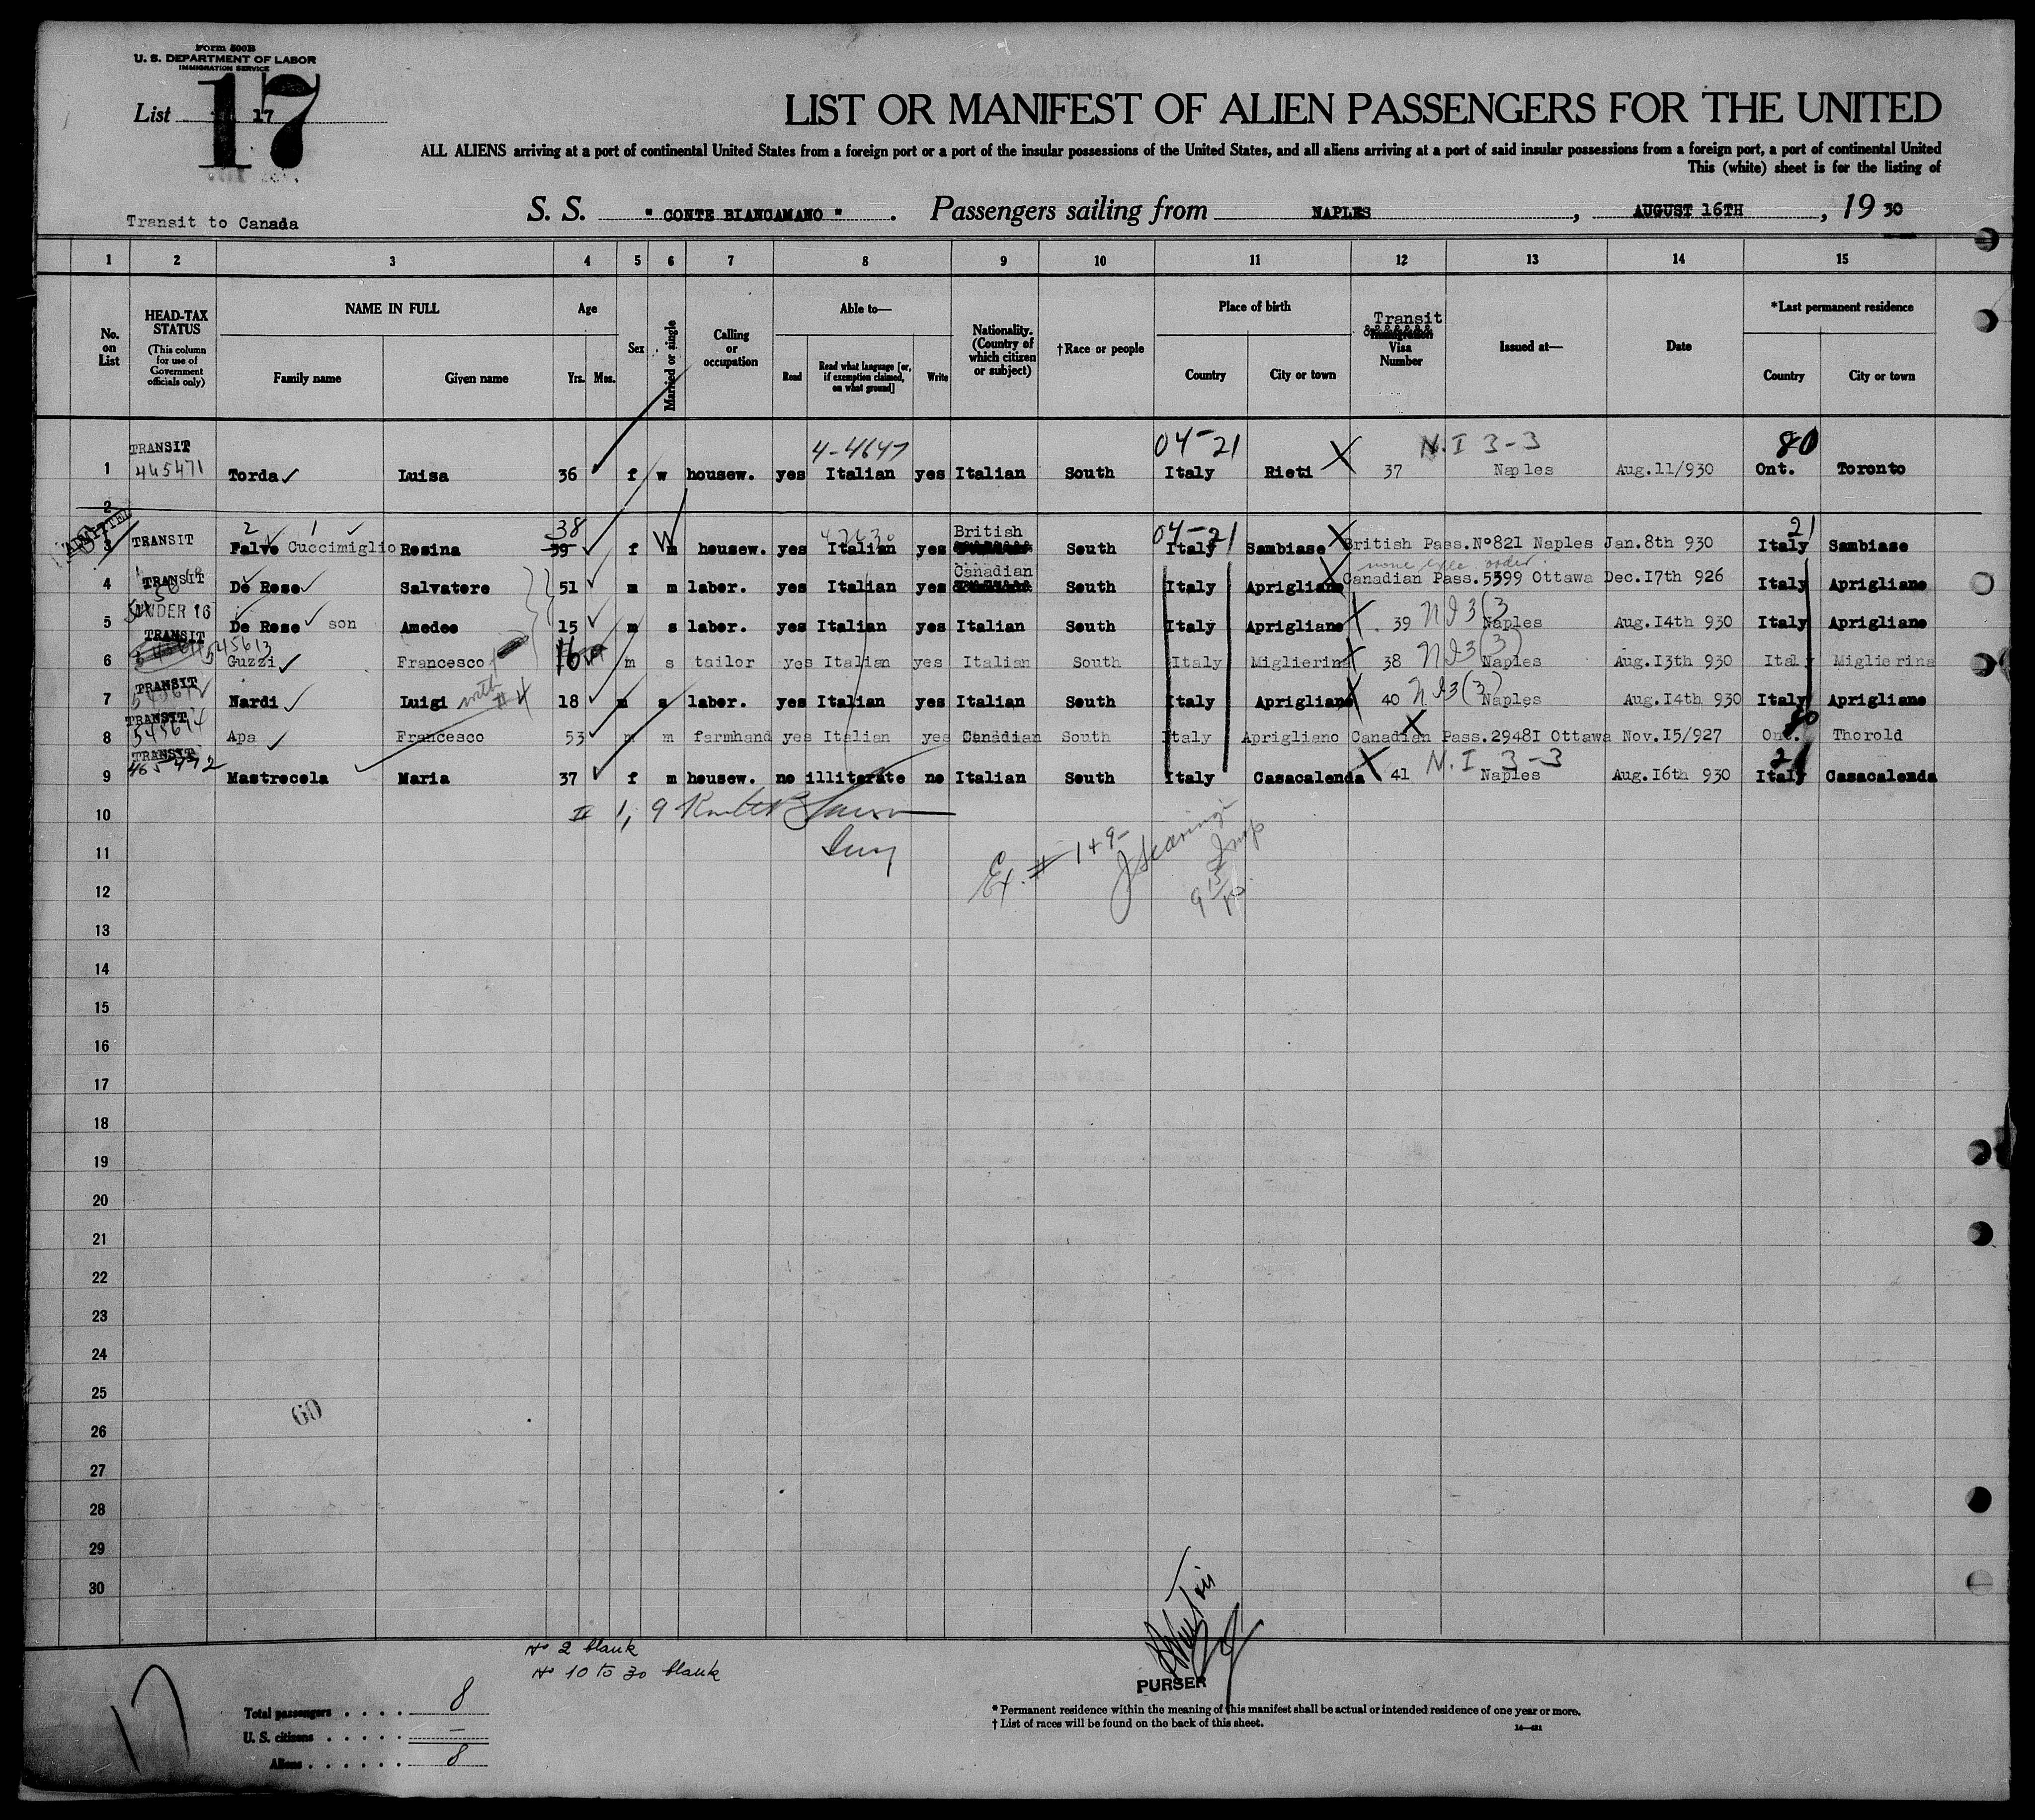 Form 500B
U. S. DEPARTMENT OF LABOR
IMMIGRATION SERVICE
17
List 17
LIST OR MANIFEST OF ALIEN PASSENGERS FOR THE UNITED
ALL ALIENS arriving at a port of continental United States from a foreign port or a port of the insular possessions of the United States, and all aliens arriving at a port of said insular possessions from a foreign port, a port of continental United
This (white) sheet is for the listing of
Transit to Canada
S. S. " CONTE BIANCAMANO ". Passengers sailing from NAPLES, AUGUST 16TH, 19 30
1 2 3 4 5 6 7 8 9 10 11 12 13 14 15
No. on List
HEAD-TAX STATUS (This column for use of Government officials only)
NAME IN FULL
Family name Given name
Age
Yrs. Mos.
Sex
Married or single
Calling or occupation
Able to—
Read
Read what language [or, if exemption claimed, on what ground]
Write
Nationality. (Country of which citizen or subject)
†Race or people
Place of birth
Country City or town
Transit
Visa Number
Issued at—
Date
*Last permanent residence
Country City or town
4-4647 04-21 N.I 3-3 80
1 TRANSIT 465471 Torda Luisa 36 f w housew. yes Italian yes Italian South Italy Rieti X 37 Naples Aug.11/930 Ont. Toronto
2
ADMITTED
2 1 38 W British 04-21 21
3 TRANSIT Falvo Cuccimiglio Rosina 39 f m housew. yes Italian yes South Italy Sambiase X British Pass.Nº821 Naples Jan.8th 930 Italy Sambiase
Canadian
4 TRANSIT De Rose Salvatore 51 m m laborer. yes Italian yes South Italy Aprigliano X Canadian Pass.5399 Ottawa Dec.17th 926 Italy Aprigliano
5 UNDER 16 De Rose son Amedeo 15 m s labor. yes Italian yes Italian South Italy Aprigliano X 39 NI 3(3 Naples Aug.14th 930 Italy Aprigliano
6 TRANSIT 545613 Guzzi Francesco 16 m s tailor yes Italian yes Italian South Italy Miglierina X 38 NI3(3) Naples Aug.13th 930 Italy Miglierina
7 TRANSIT Nardi Luigi with #4 18 m s labor. yes Italian yes Italian South Italy Aprigliano X 40 NI3(3) Naples Aug.14th 930 Italy Aprigliano
8 TRANSIT 545614 Apa Francesco 53 m m farmhand yes Italian yes Canadian South Italy Aprigliano X Canadian Pass.29481 Ottawa Nov.15/927 80 Ont. Thorold
9 TRANSIT 465472 Mastrocola Maria 37 f m housew. no illiterate no Italian South Italy Casacalenda X 41 N.I 3-3 Naples Aug.16th 930 21 Italy Casacalenda
10
11
Ex. # 1+9
12
13
14
15
16
17
18
19
20
21
22
23
24
25
60
26
27
28
29
30
Nº 2 blank
Nº 10 to 30 blank
17
PURSER
Total passengers . . . . 8
U. S. citizens . . . . . —
Aliens . . . . . . 8
* Permanent residence within the meaning of this manifest shall be actual or intended residence of one year or more.
† List of races will be found on the back of this sheet.
14—431